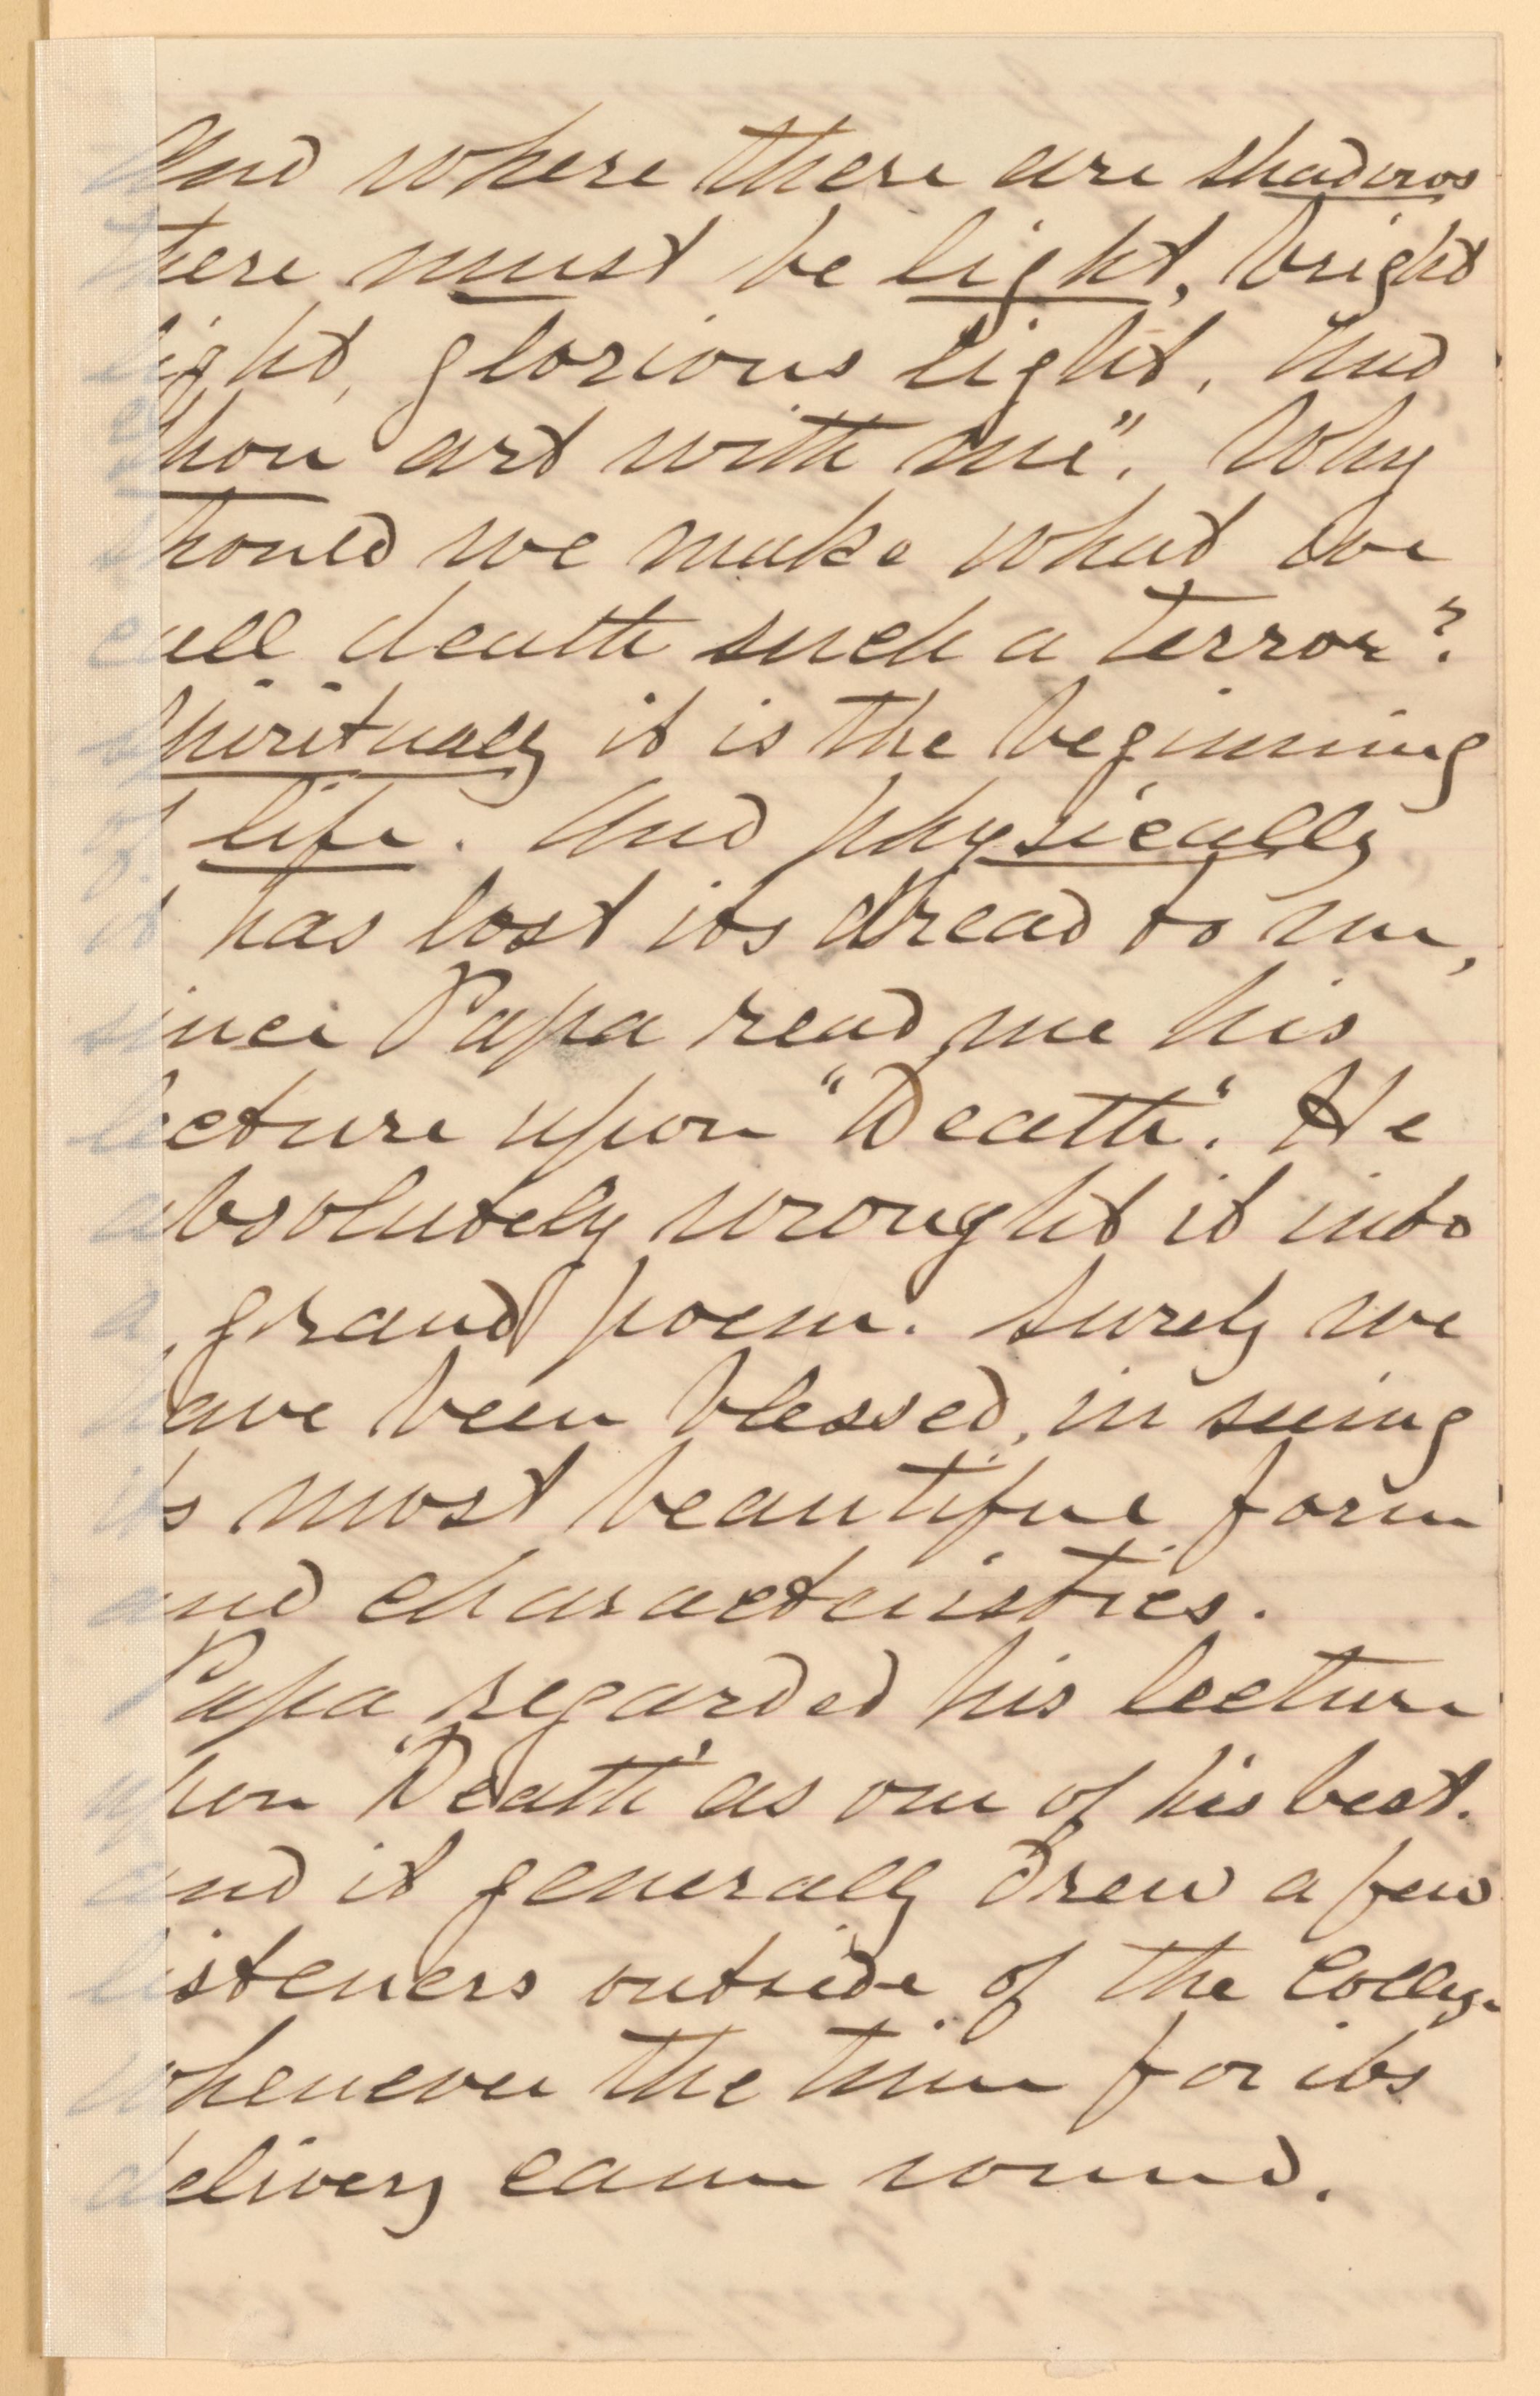 And where there are shadows
there must be light, bright
light, glorious light, And
Thou art with me". Why
should we make what we
call death such a terror?
Spiritually it is the beginning
of life. And physically
it has lost its dread to me,
since Papa read me his
lecture upon "Death". He
absolutely wrought it into
a grand poem. Surely we
have been blessed, in seeing
its most beautiful form
and characteristics.
Papa regarded his lecture
upon "Death" as one of his best.
and it generally drew a few
listeners outside of the College
whenever the time for its
delivery came round.